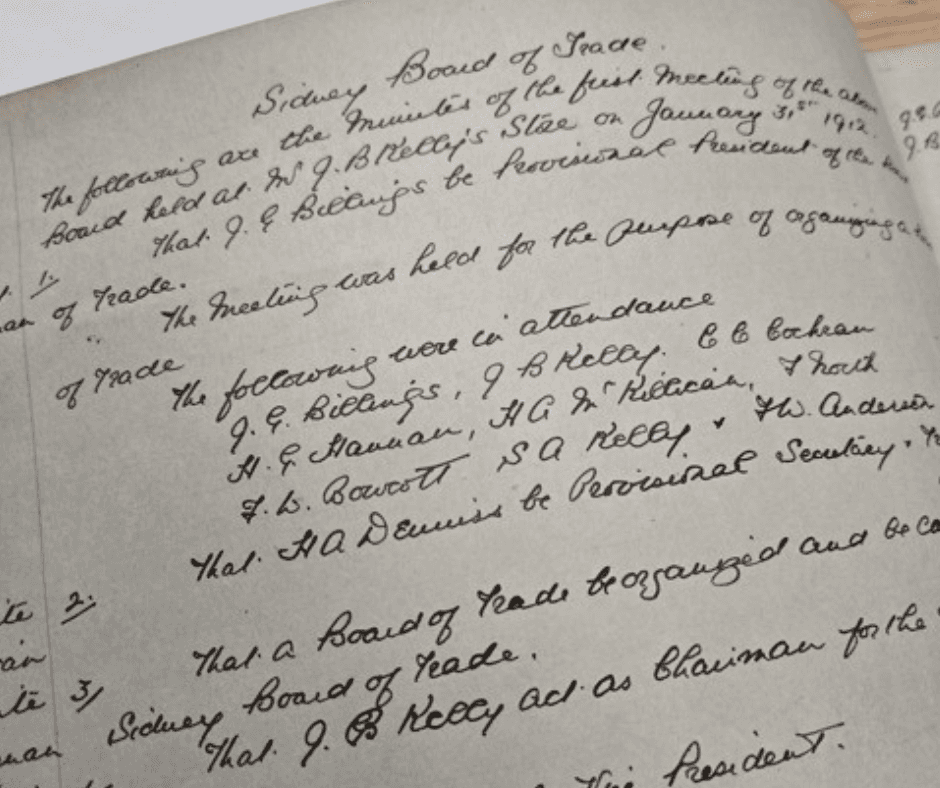 Sidney Board of Trade.
The following are the Minutes of the first Meeting of the above
Board held at Mr J. B Kelly's Store on January 31st 1912.
1. That J. E Billings be Provisional President of the
of Trade.
The Meeting was held for the purpose of organizing a
of Trade
The following were in attendance
J. E. Billings, J B Kelly. C C Cochran
H. E Hannan, H A McKillican, F North
F. W. Bowcott S A Kelly & F W. Anderson
2. That H A Dennis be Provisional Secretary.
3 That a Board of Trade be organized and be
Sidney Board of Trade.
That J. B Kelly act as Chairman for the
Vice President.